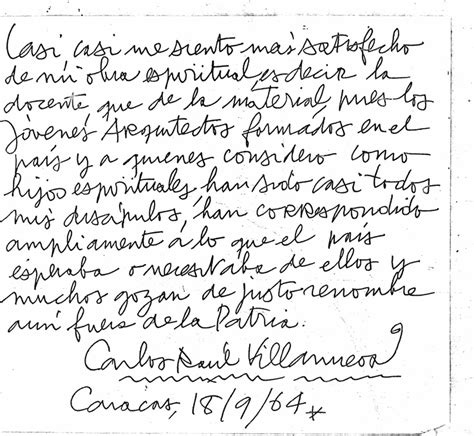 Casi casi me siento más satisfecho
de mi obra espiritual, es decir la
docente, que de la material, pues los
jóvenes Arquitectos formados en el
país y a quienes considero como
hijos espirituales, han sido casi todos
mis discípulos, han correspondido
ampliamente a lo que el país
esperaba o necesitaba de ellos y
muchos gozan de justo renombre
aún fuera de la Patria.
Carlos Raúl Villanueva
Caracas, 18/9/64